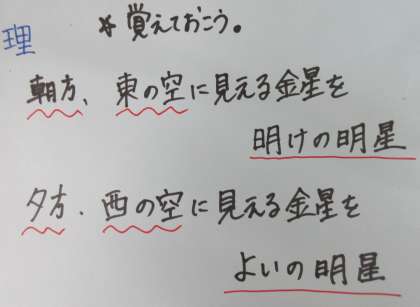 理
*覚えておこう。
朝方、東の空に見える金星を
明けの明星
夕方、西の空に見える金星を
よいの明星